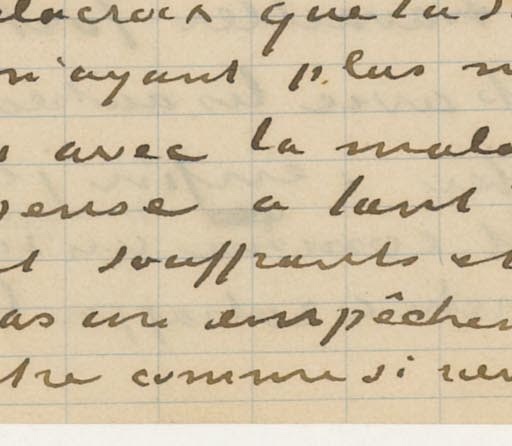 elacroix que tu s
n'ayant plus n
avec la mala
pense a tant
t souffrants et
as un empêchem
tre comme si rer